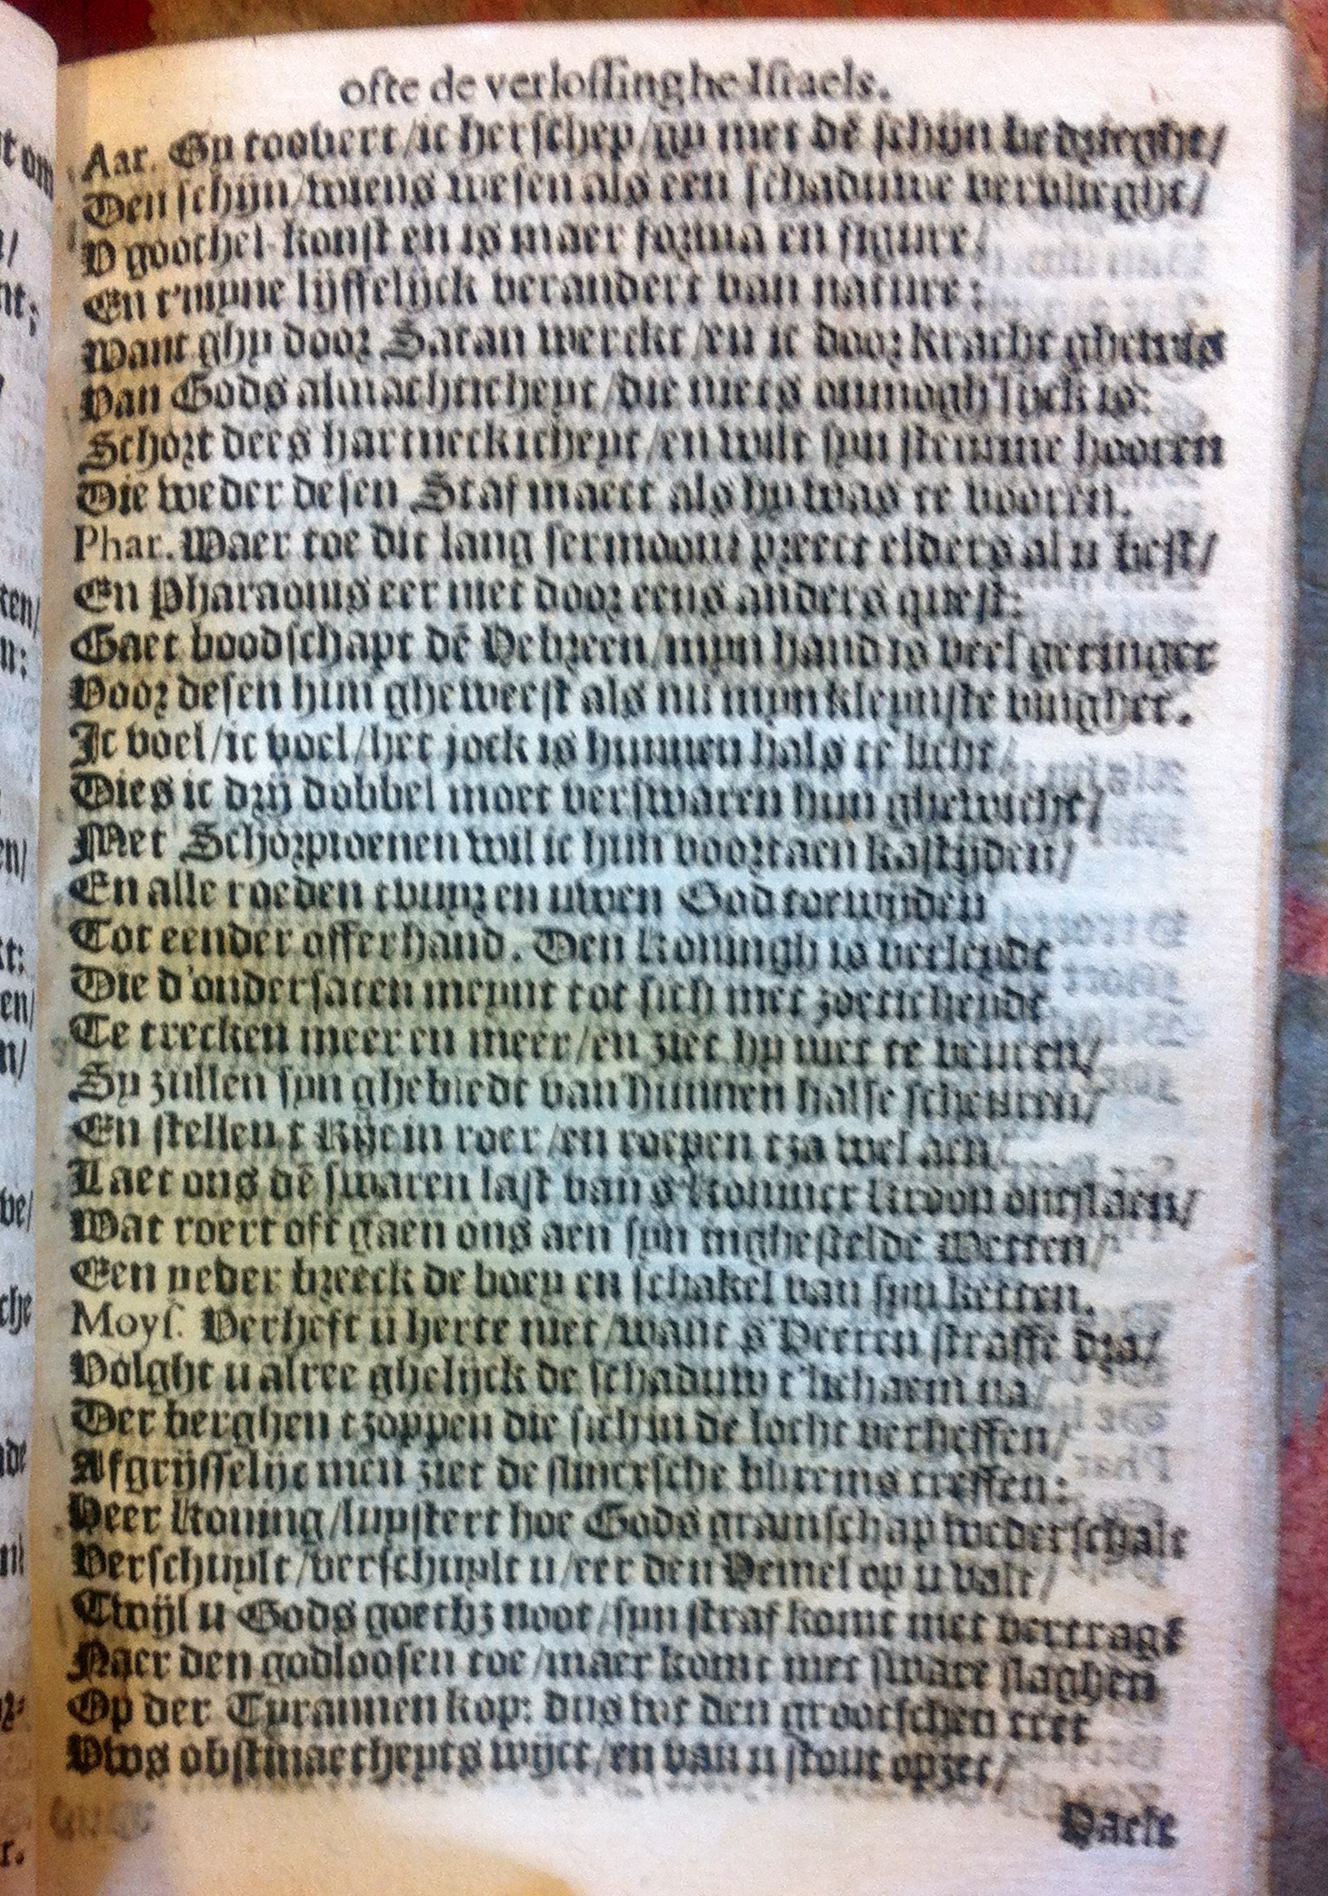 ofte de verlossinghe Israels.
Aar. Gy toovert/ic herschep/gy met dē schijn bedrieght/
Den schijn/wiens wesen als een schaduwe vervlieght/
V goochel-konst en is maer forma en figure/
En t'mijne lijffelijck verandert van nature:
Want ghy door Satan werckt/en ic door kracht ghewis
Van Gods almachticheyt/die niets onmogh'lijck is:
Schort dees hartneckicheyt/en wilt syn stemme hooren
Die weder desen Staf maect als hy was te vooren.
Phar. Waer toe dit lang sermoon? preect elders al u best/
En Pharaonis eer niet door eens anders quest:
Gaet boodschapt dē Hebreen/mijn hand is veel geringer
Voor desen hun gheweest als nu mijn kleynste vingher.
Ic voel/ic voel/het jock is hunnen hals te licht/
Dies ic drij dobbel moet verswaren hun ghewicht/
Met Schorpioenen wil ic hun voortaen kastijden/
En alle roeden tvuyr en uwen God toewijden
Tot eender offerhand. Den Koningh is verleydt
Die d'ondersaten meynt tot sich met zoeticheydt
Te trecken meer en meer/en ziet hy niet te veuren/
Sy zullen syn ghebiedt van hunnen halse scheuren/
En stellen t Rijc in roer/en roepen tza wel aen/
Laet ons dē swaren last van s'Konincx Kroon ontslaen/
Wat roert oft gaen ons aen syn inghestelde Wetten/
Een yeder breeck de boey en schakel van syn ketten.
Moys. Verheft u herte niet/want s'Heeren straffe dra/
Volght u alree ghelijck de schaduw t'lichaem na/
Der berghen tzoppen die sich in de locht verheffen/
Afgrijsselijc men ziet de slincxsche blixems treffen:
Heer Koning/luystert hoe Gods gramschap wederschalt
Verschuylt/verschuylt u/eer den Hemel op u valt/
Twijl u Gods goetheyt noot/syn straf komt niet vertragt
Naer den godloosen toe/maer komt met sware slaghen
Op der Tyrannen kop: dus wt den grootschen tret
Vws obstinaetheyts wijct/en van u stout opzet/
Haest